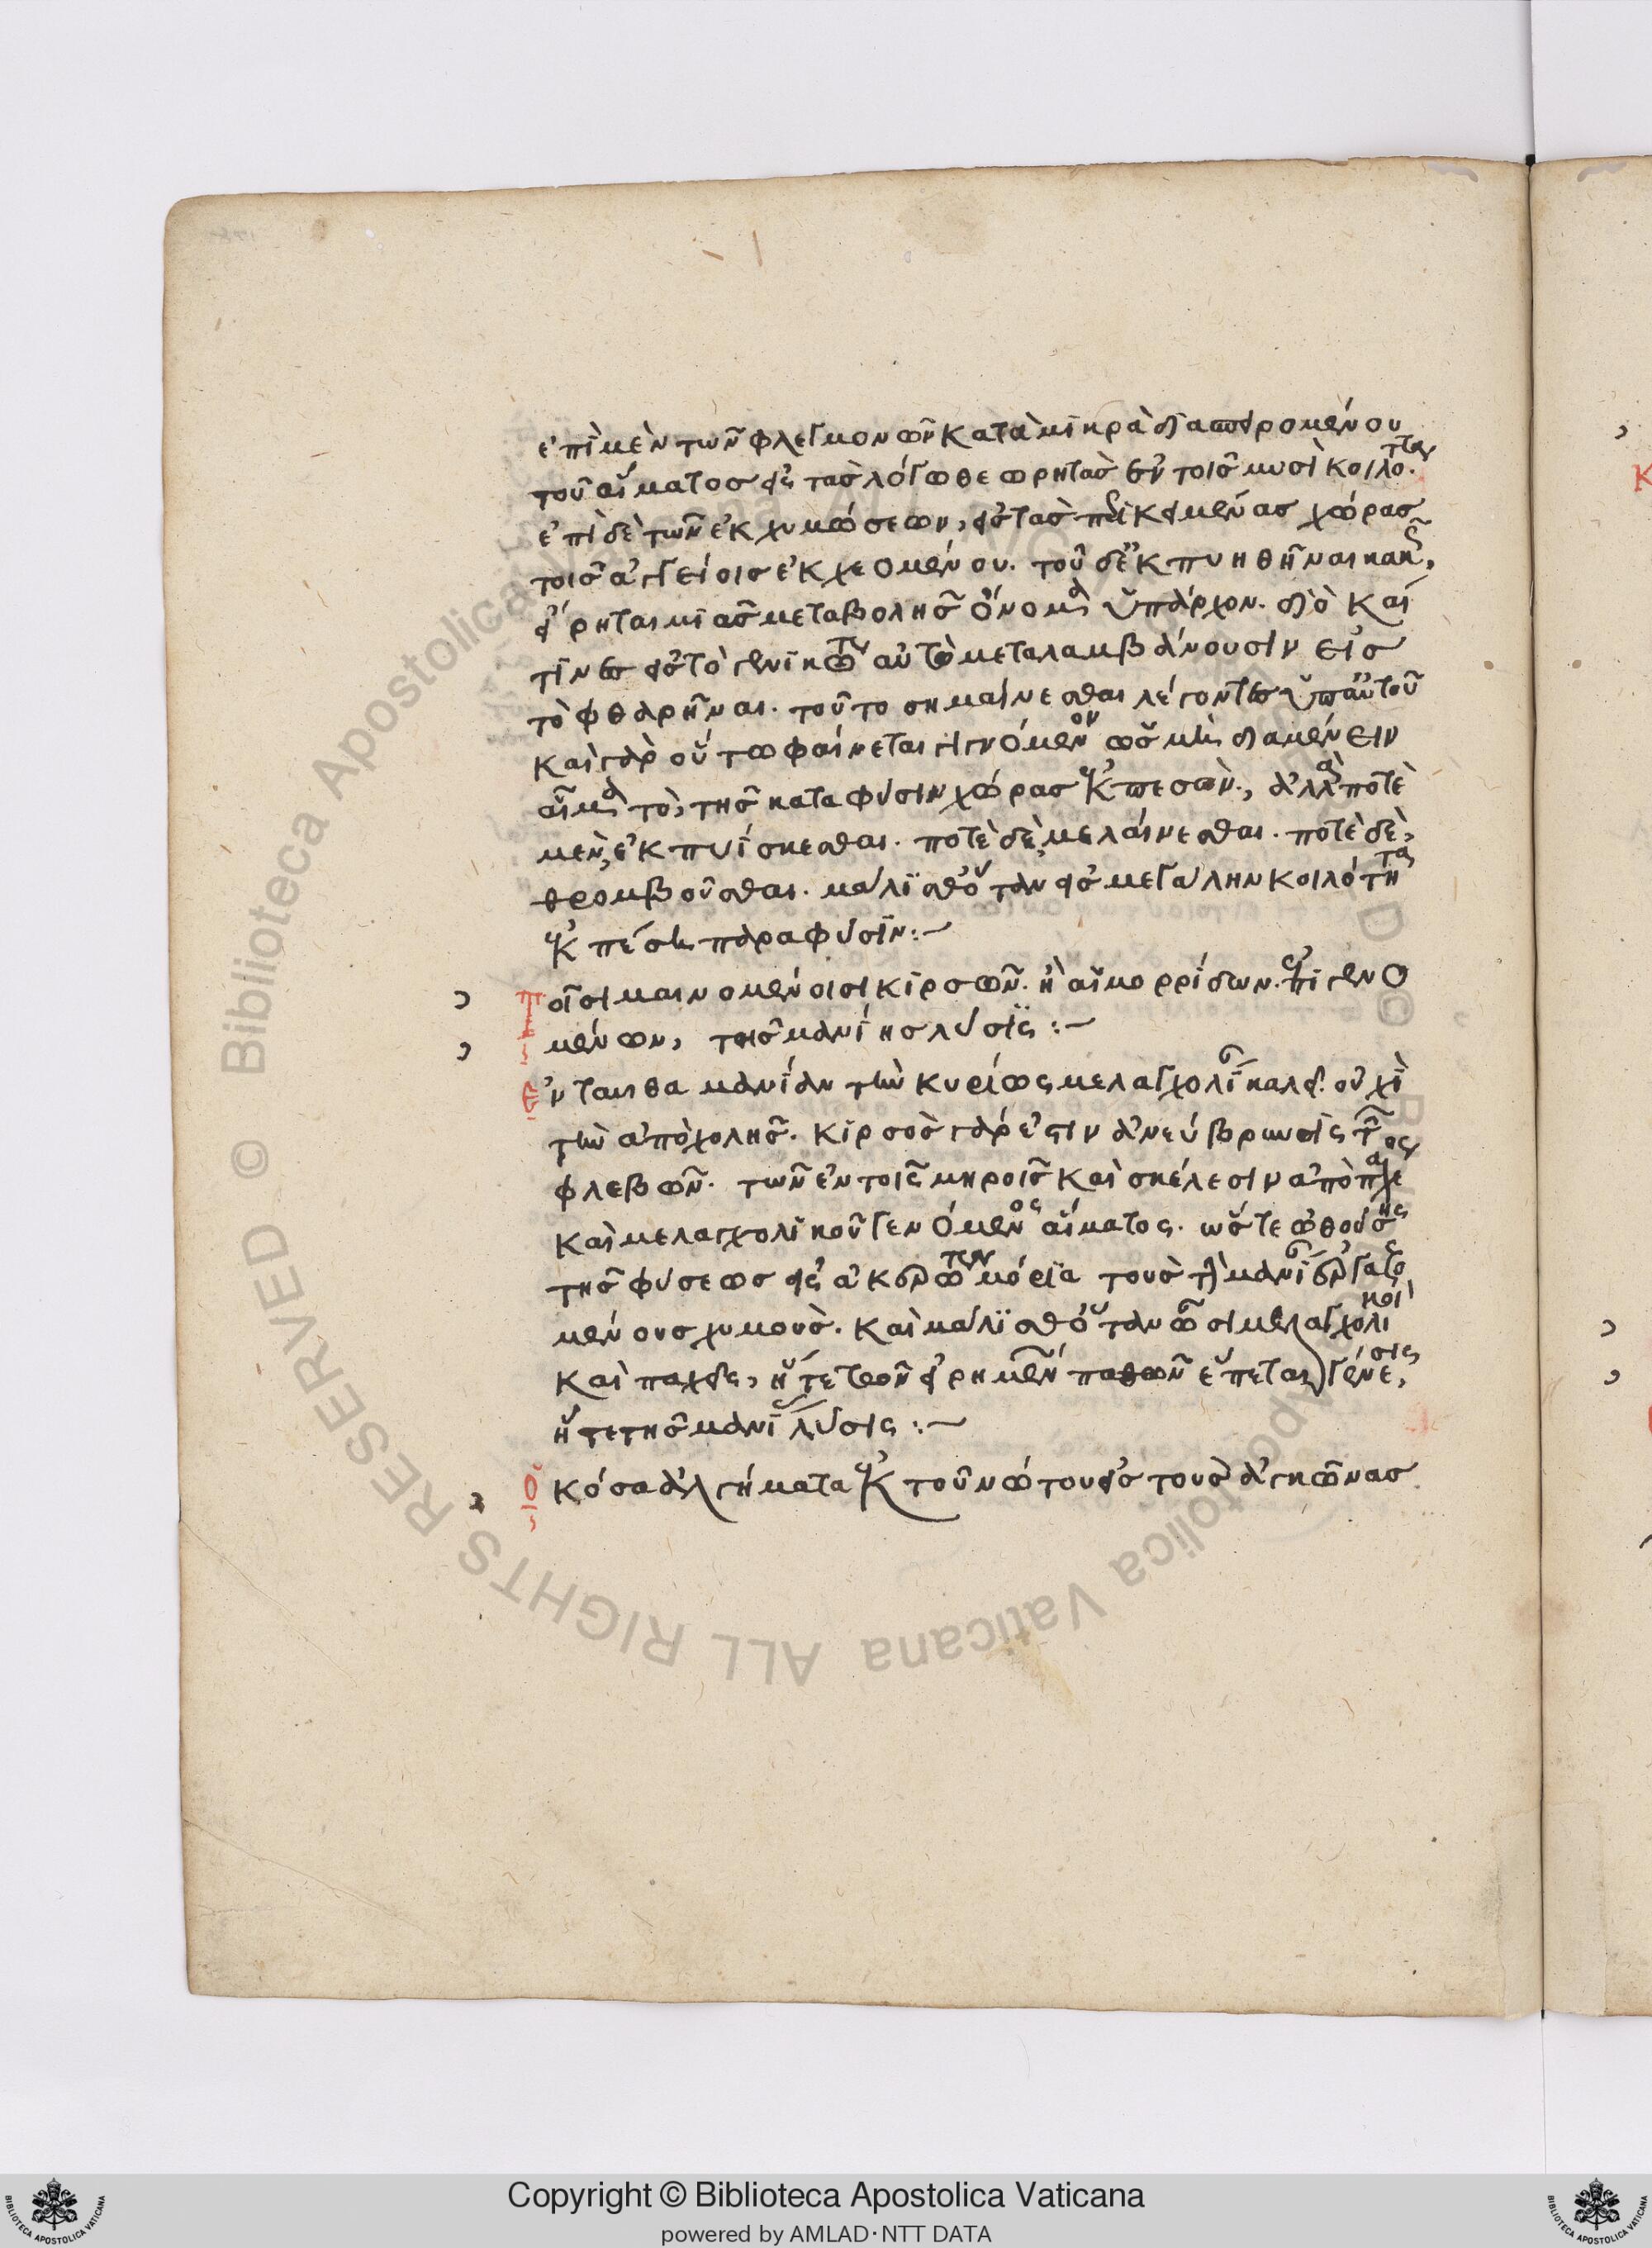 ἐπὶ μὲν τῶν φλεγμονῶν κατὰ μικρὰ διασπειρομένου
τοῦ αἵματος εἰς τὰς λόγω θεωρητὰς ἐν τοῖς μυσὶ κοιλότητας.
ἐπὶ δὲ τῶν ἐκχυμώσεων, εἰς τὰς περικειμένας χώρας
τοῖς ἀγγείοις ἐκχεομένου. τοῦ δ' ἐκπυηθῆναι
εἴρηται μιᾶς μεταβολῆς ὄνομα ὑπάρχον. διὸ καί
τινες εἰς τὸ γενικώτατον αὐτὸ μεταλαμβάνουσιν εἰς
τὸ φθαρῆναι. τοῦτο σημαίνεσθαι λέγοντες ὑπ' αὐτοῦ
καὶ γὰρ οὕτω φαίνεται γιγνόμενον ὡς μὴ διαμένειν
αἷμα τὸ, τῆς κατα φύσιν χώρας ἐκπεσὸν, ἀλλὰ ποτὲ
μὲν, ἐκπυΐσκεσθαι. ποτὲ δὲ, μελαίνεσθαι. ποτὲ δὲ,
θρομβοῦσθαι. μάλισθ' ὅταν εἰς μεγάλην κοιλότητα
ἐκπέση παρα φύσιν:~
Τοῖσι μαινομένοισι κιρσῶν. ἢ αἱμορρίδων. ἐπιγενο
μένων, τῆς μανίης λύσις:~
Ενταυθα μανίαν τὴν κυρίως μελαγχολίαν καλεῖ. οὐχὶ
τὴν ἀπὸ χολῆς. κιρσὸς γάρ ἐστιν ἀνεύρυνσις τῆς
φλεβῶν. τῶν ἐν τοῖς μηροῖς καὶ σκέλεσιν ἀπὸ παχέος
καὶ μελαγχολικοῦ γενομένης αἵματος. ὥστε ὠθούσης
τῆς φύσεως εἰς ἀκυρώτερα μόρια τοὺς τὴν μανίαν ἐργαζο
μένους χυμούς. καὶ μάλισθ' ὅταν ὦσι μελαγχολικοὶ
καὶ παχεῖς, ἥ τε τῶν εἰρημένων παθῶν ἕπεται γένεσις,
ἥ τε τῆς μανίας λύσις:~
Ὁκόσα ἀλγήματα ἐκ τοῦ νώτου εἰς τοὺς ἀγκῶνας
Copyright © Biblioteca Apostolica Vaticana
powered by AMLAD·NTT DATA
Biblioteca Apostolica Vaticana ALL RIGHTS RESERVED ©